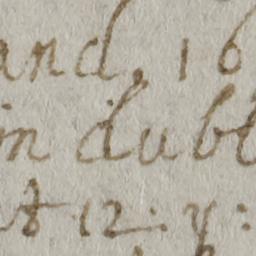 and, 16
in dubl
at 12: y: